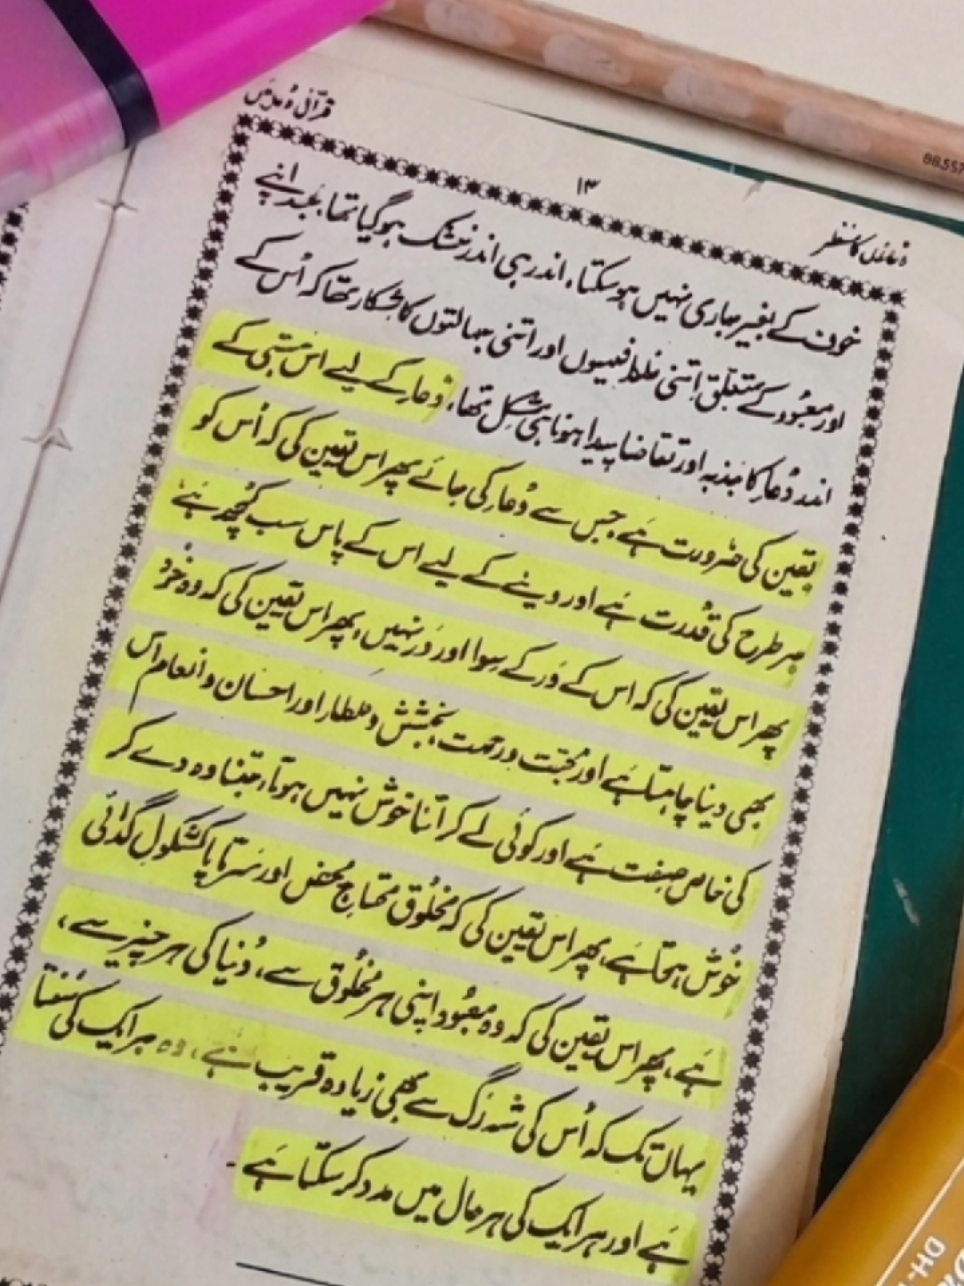 قرآنی دُعائیں
۱۳
دُعاؤں کا منظر
خون کے بغیر جاری نہیں ہو سکتا، اندر ہی اندر خشک ہو گیا تھا، بلکہ اپنے
اور معبُود کے متعلّق اِتنی غلط فہمیوں اور اتنی جہالتوں کا شکار تھا کہ اُس کے
اندر دُعا کا جذبہ اور تقاضا پیدا ہونا ہی مُشکل تھا، دُعا کے لیے اس ہستی کے
یقین کی ضرورت ہے جس سے دُعا کی جائے پھر اس یقین کی کہ اُس کو
ہر طرح کی قُدرت ہے اور دینے کے لیے اس کے پاس سب کُچھ ہے
پھر اس یقین کی کہ اس کے دَر کے سِوا اور دَر نہیں، پھر اس یقین کی کہ وہ خود
بھی دینا چاہتا ہے اور مُحبّت و رحمت، بخشِش و عطا اور احسان و انعام اس
کی خاص صِفت ہے اور کوئی لے کر اتنا خوش نہیں ہوتا، جتنا وہ دے کر
خُوش ہوتا ہے، پھر اس یقین کی کہ مخلُوق محتاجِ محض اور سَرتاپا کشکولِ گدائی
ہے، پھر اس یقین کی کہ وہ معبُود اپنی ہر مخلُوق سے، دُنیا کی ہر چیز سے،
یہاں تک کہ اُس کی شہ رَگ سے بھی زیادہ قریب ہے، وہ ہر ایک کی سُنتا
ہے اور ہر ایک کی ہر حال میں مدد کر سکتا ہے۔
88557
DH-